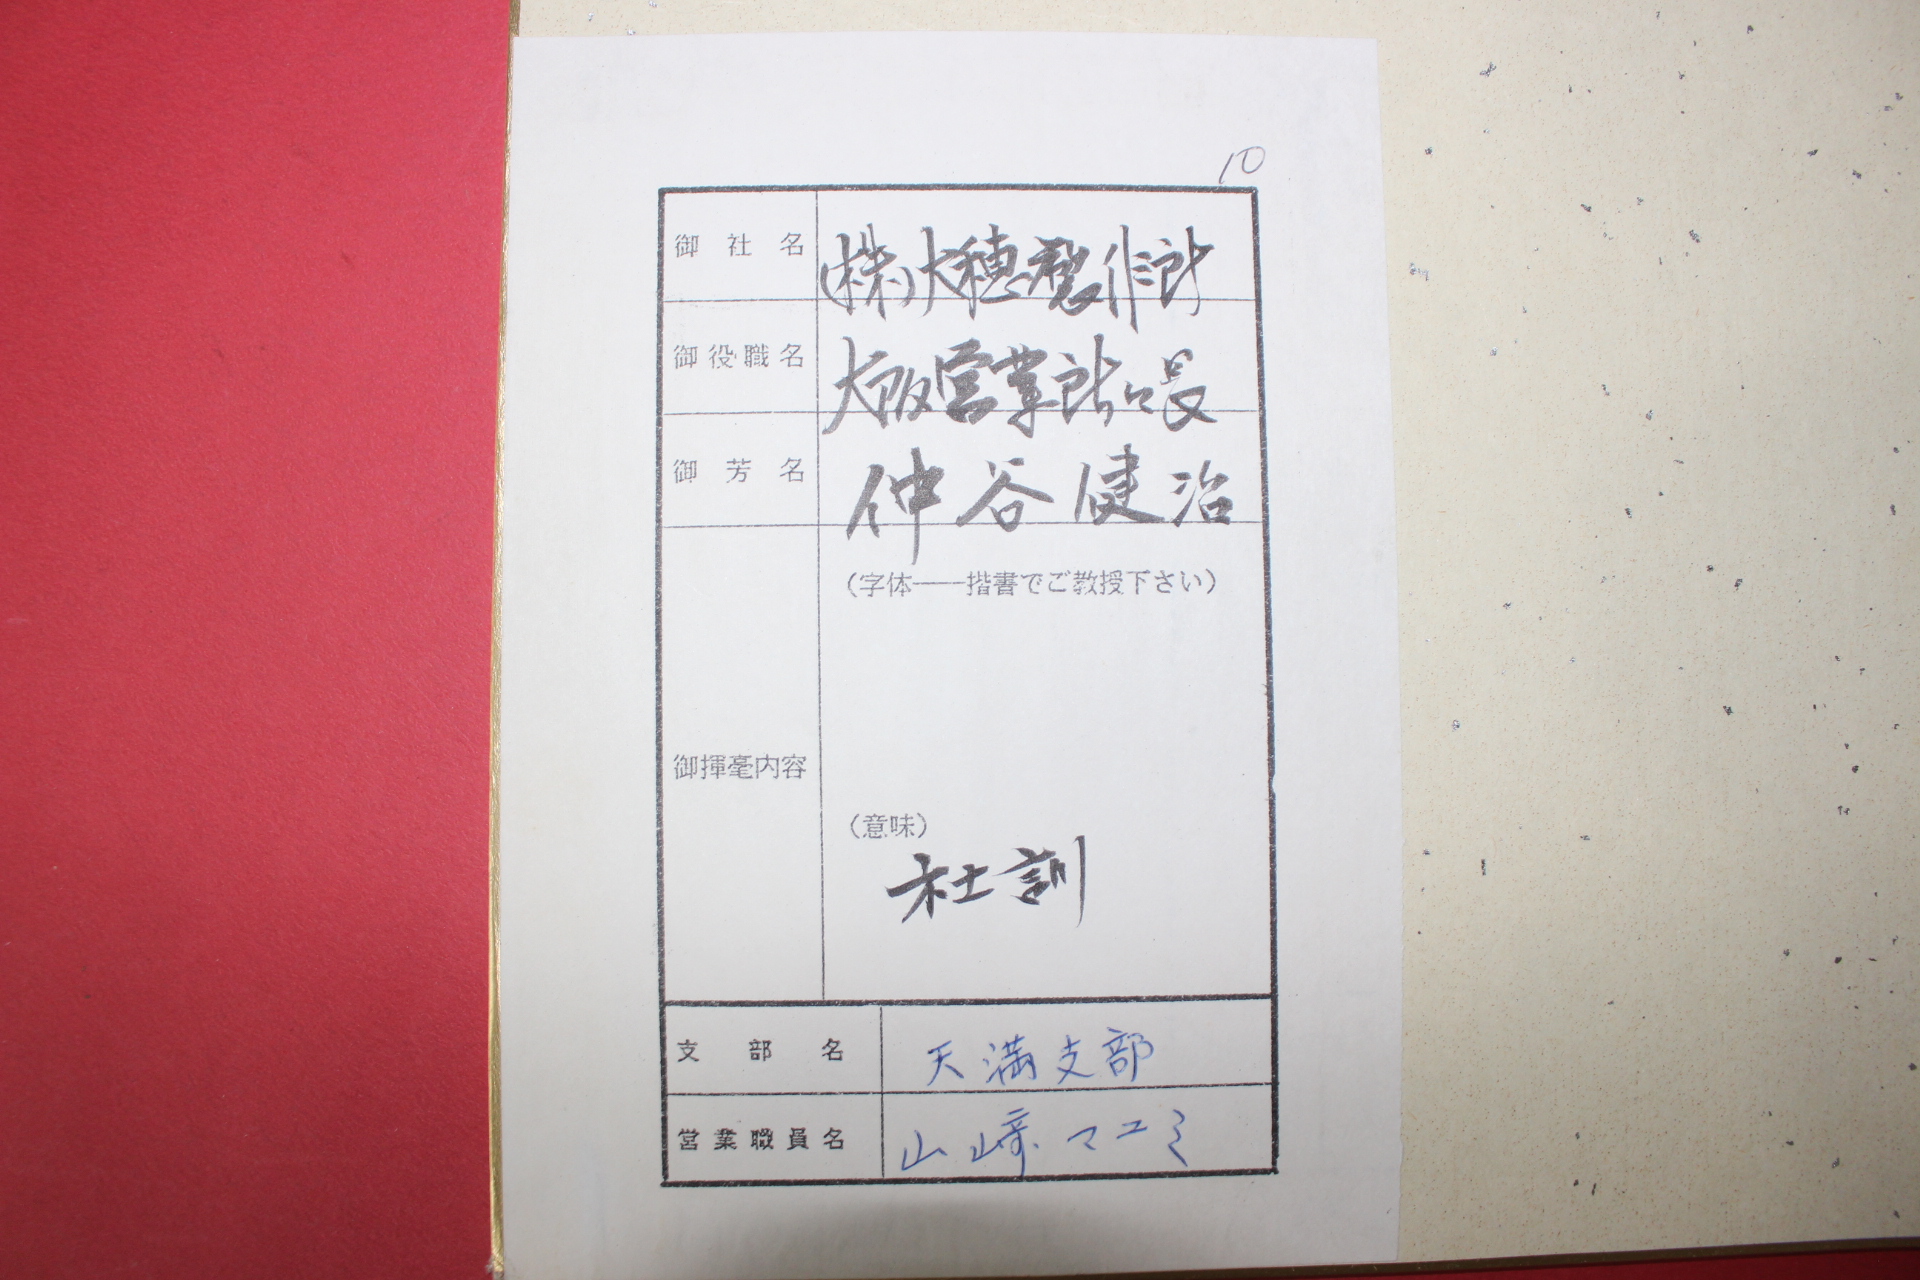 10
御社名 (株)大穂製作所
御役職名 大阪営業所々長
御芳名 仲谷健治
(字体――揩書でご教授下さい)
御揮毫内容
(意味)
社訓
支部名 天満支部
営業職員名 山崎マユミ